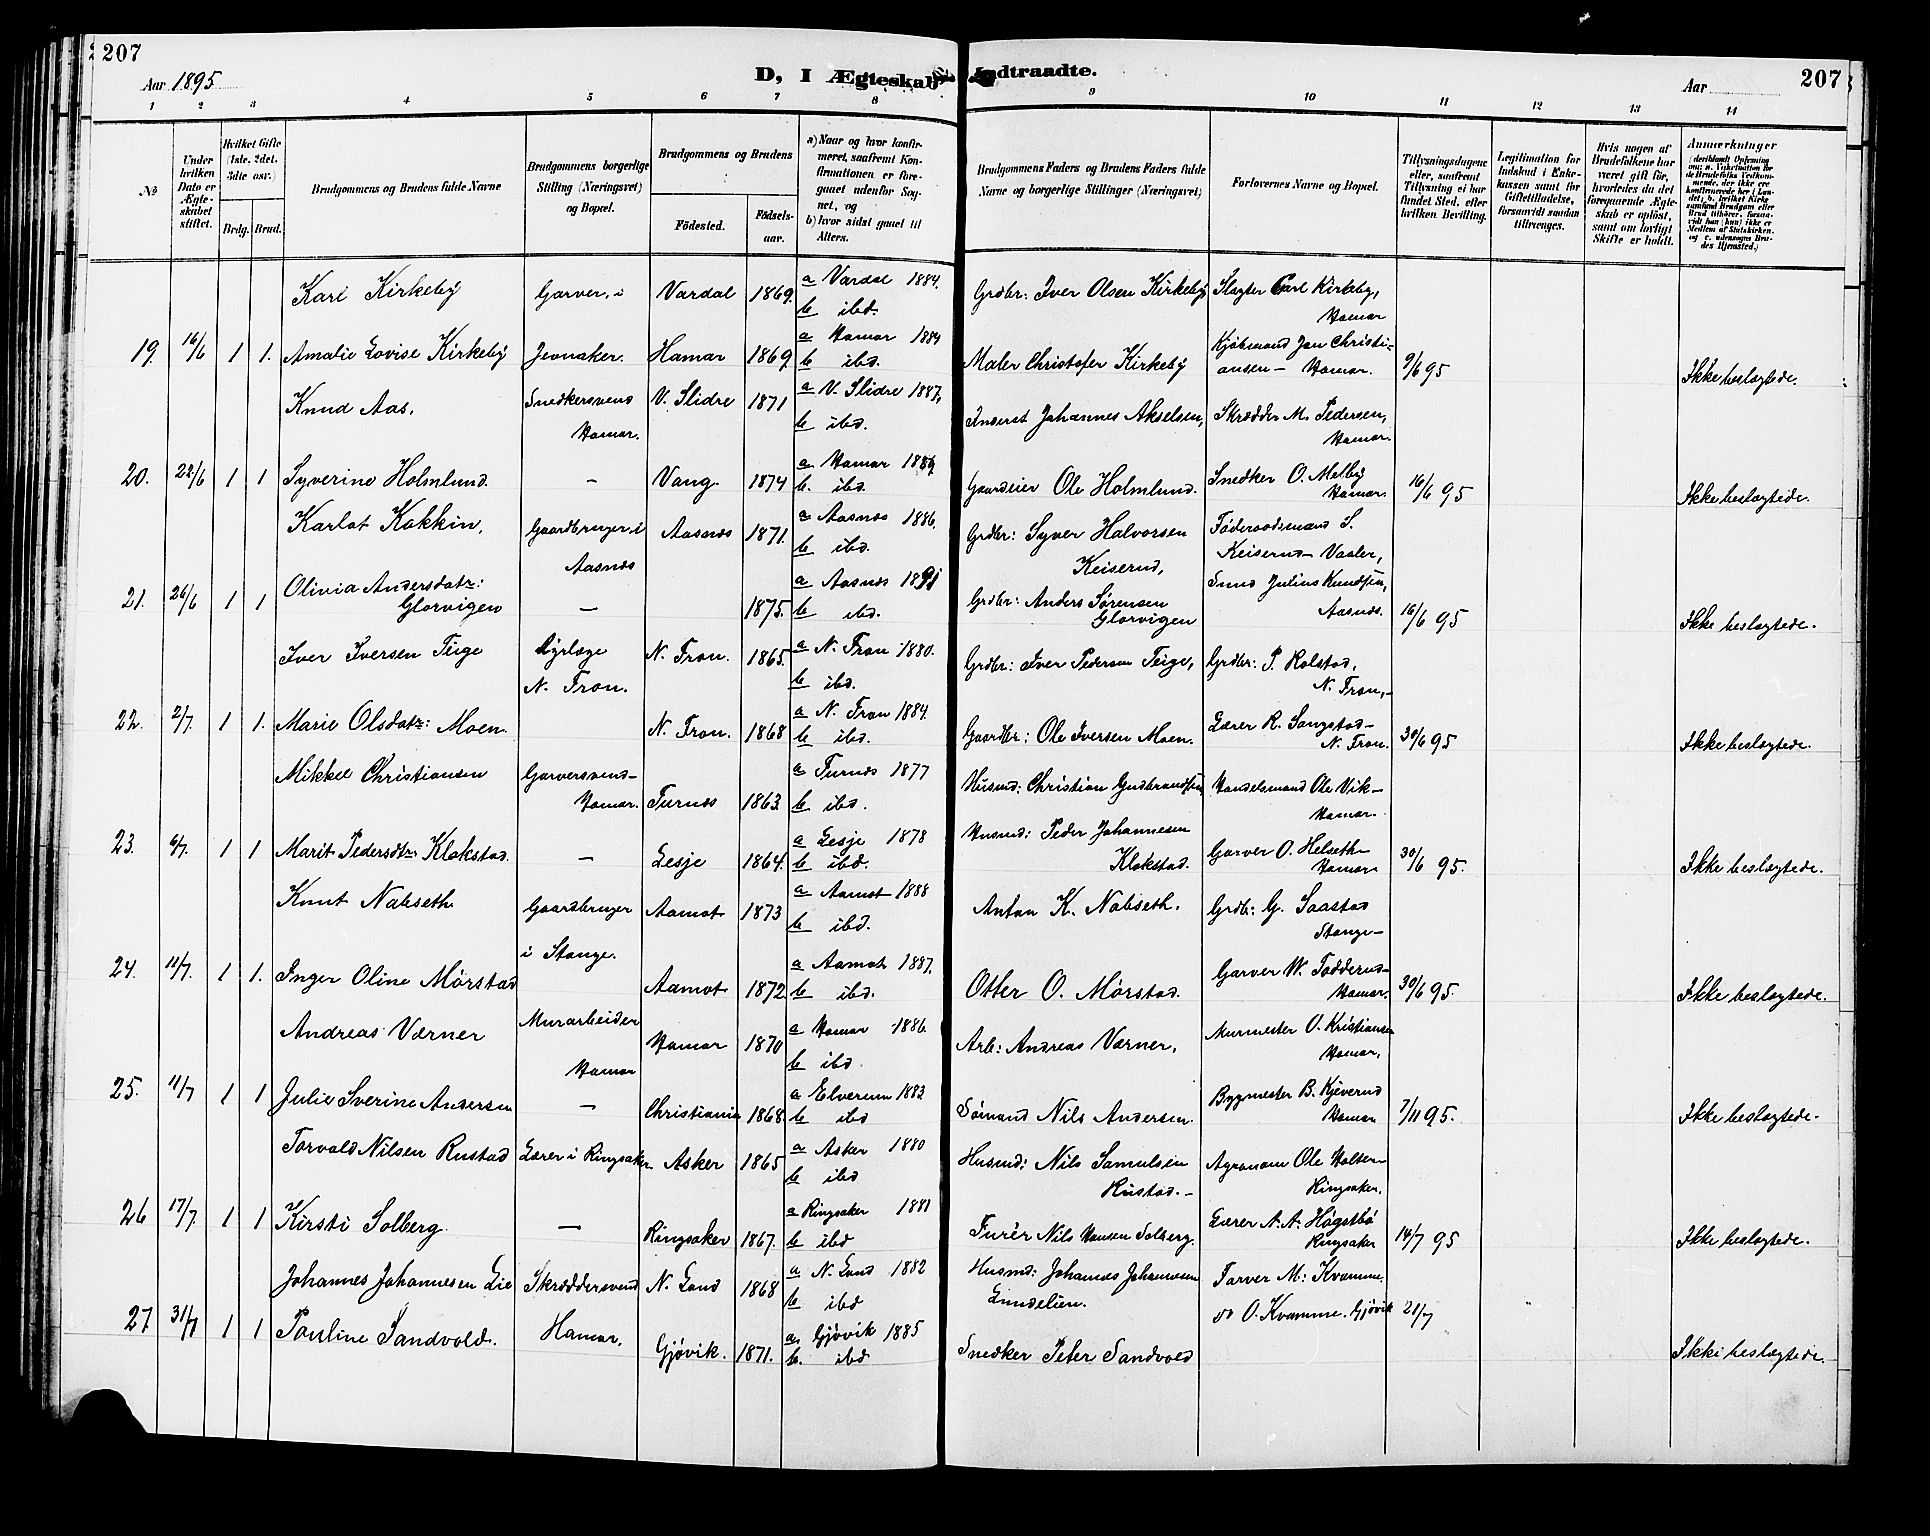 207
Aar 1895
D, I Ægteskab Indtraadte.
Aar
207
1 2 3 4 5 6 7 8 9 10 11 12 13 14
No
Under hvilken Dato er Ægteskabet stiftet.
Hvilket Gifte (1ste, 2det, 3die osv.)
Brdg. Brud.
Brudgommens og Brudens fulde Navne
Brudgommens borgerlige Stilling (Næringsvei) og Bopæl.
Brudgommens og Brudens
Fødested. Fødselsaar.
a) Naar og hvor konfirmeret, saafremt Konfirmationen er foregaaet udenfor Sognet, og
b) hvor sidst gaaet til Alters.
Brudgommens Faders og Brudens Faders fulde Navne og borgerlige Stillinger (Næringsvei)
Forlovernes Navne og Bopæl.
Tillysningsdagene eller, saafremt Tillysning ei har fundet Sted, efter hvilken Bevilling.
Legitimation for Indskud i Enkekassen samt for Giftetilladelse, forsaavidt saadan tiltrænges.
Hvis nogen af Brudefolkene har været gift før, hvorledes da det foregaaende Ægteskab er opløst, samt om lovligt Skifte er holdt.
Anmærkninger
Karl Kirkeby Garver, i Vardal 1869. a Vardal 1884. Grdbr: Iver Olsen Kirkeby Slagter Carl Kirkeby,
b ibd. Hamar
19. 16/6 1 1. Amalie Lovise Kirkeby Jevnaker. Hamar 1869. a Hamar 1884 Maler Christofer Kirkeby Kjøbmand Jan Christi-
b ibd. ansen - Hamar. 9/6 95 Ikke beslægtede.
Knud Aas. Snedkersvend V. Slidre 1871 a V. Slidre 1887, Inderst Johannes Akselsen, Skrædder M. Pedersen,
Hamar. b ibd. Hamar.
20. 22/6 1 1 Syverine Holmlund. - Vang. 1874 a Hamar 1889 Gaardeier Ole Holmlund. Snedker O. Melby
b. ibd. Hamar. 16/6 95 Ikke beslægtede.
Karlot Kokkin, Gaardbruger i Aasnæs 1871. a Aasnæs 1886. Grdbr: Syver Halvorsen Føderaadsmand S.
Aasnæs b ibd. Keiserud, Keiserud - Vaaler,
21. 26/6 1 1 Olivia Andersdatr: - 1875. a Aasnæs 1891 Grdbr: Anders Sørensen Smed Julius Knudsen,
Glorvigen b ibd. Glorvigen Aasnæs. 16/6 95 Ikke beslægtede.
Iver Iversen Teige Dyrlæge N. Fron. 1865. a N. Fron 1880. Grdbr: Iver Pedersen Teige, Grdbr: P. Rolstad,
N. Fron. b ibd. N. Fron,
22. 2/7 1 1. Marie Olsdatr: Moen N. Fron. 1868 a N. Fron 1884. Gaardbr: Ole Iversen Moen. Lærer R. Sangstad -
b ibd. N. Fron. 30/6 95 Ikke beslægtede.
Mikkel Christiansen Garversvend - Furnæs 1863 a Furnæs 1877 Husmd: Christian Gudbrandsen Handelsmand Ole Vik -
Hamar. b ibd. Hamar.
23. 6/7. 1 1 Marit Pedersdtr Klokstad. - Lesje 1864. a Lesje 1878 Husmd: Peder Johannesen Garver O. Helseth -
b ibd. Klokstad. Hamar 30/6 95. Ikke beslægtede.
Knut Nabseth Gaardbruger Aamot 1873 a Aamot 1888 Anton K. Nabseth. Grdb: G. Saastad
i Stange. b ibd. Stange -
24. 11/7. 1 1. Inger Oline Mørstad Aamot 1872 a Aamot 1887. Otter O. Mørstad. Garver W. Fodderud -
b ibd. Hamar. 30/6 95. Ikke beslægtede.
Andreas Værner Murarbeider Hamar 1870 a Hamar 1886. Arb: Andreas Værner, Murmester O. Kristiansen
Hamar b ibd. Hamar,
25. 11/7 1 1 Julie Sverine Andersen - Christiania 1868. a Elverum 1883 Sømand Nils Andersen. Bygmester B. Kjeverud
b ibd Hamar 7/11 95. Ikke beslægtede.
Torvald Nilsen Rustad Lærer i Ringsaker Asker 1865 a Asker 1880 Husmd: Nils Samulsen Agronom Ole Holter -
b ibd Rustad. - Ringsaker.
26 17/7. 1 1 Kirsti Solberg - Ringsaker 1867. a Ringsaker 1881 Furér Nils Hansen Solberg. Lærer N. A. Høgstbø
b ibd Ringsaker 14/7 95 Ikke beslægtede.
Johannes Johannesen Lie Skræddersvend N. Land 1868 a N. Land 1882 Husmd: Johannes Johannesen Farver M: Kvamme.
b ibd Lundelien.
27 31/7 1 1 Pauline Sandvold. Hamar, Gjøvik. 1871. a. Gjøvik 1885 Snedker Peter Sandvold O. Kvamme. Gjøvik 21/7
b. ibd Ikke beslægtede.